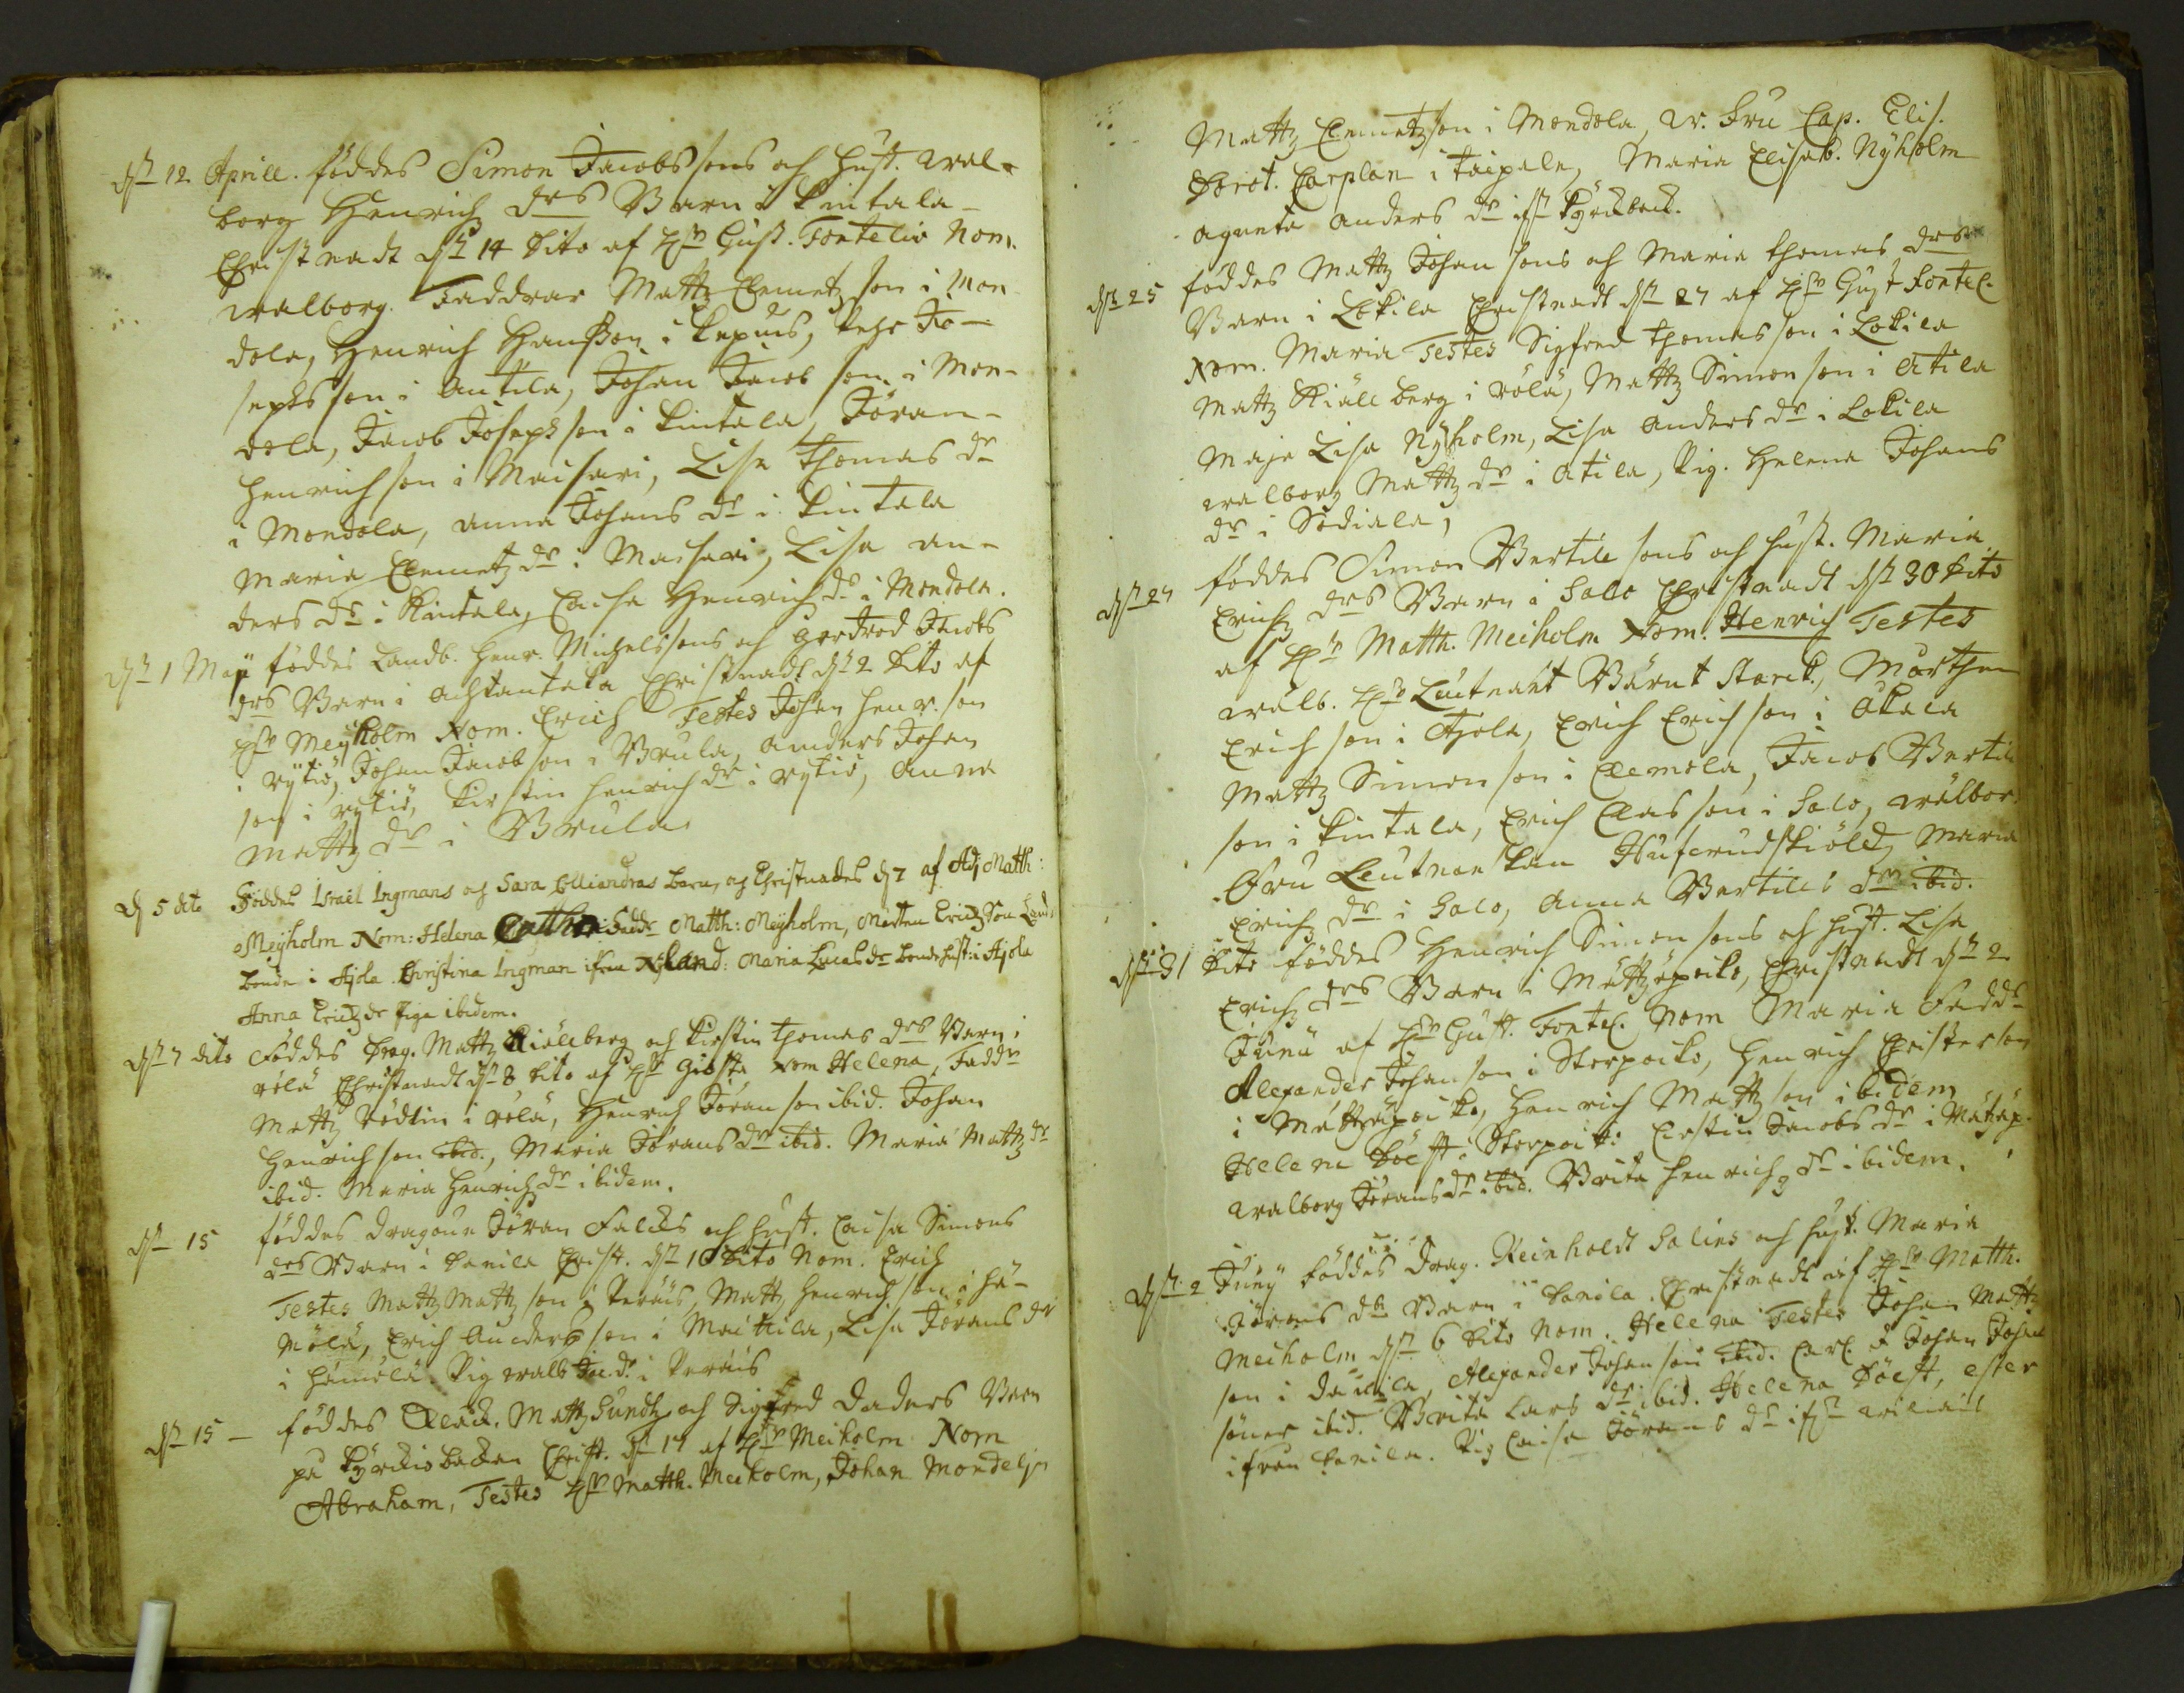 dn 12 Aprill. föddes Simon Jacobssons och hust. wal-
borg Henrichz drs Barn i Kintala-
Christnadt dn 14 dito af Hr Gust. Fontelio Nom.
walborg. Faddrar Mattz Clemetzson i Mon
dola, Henrich Hansson i
sephsson i Antila, Johan Jacob son i Mon-
dola, Jacob Josephsson i Kintala, Jöran-
Henrichson i Maisari, Lisa Thomas dr
i Mondola, anna Johans dr i Kintala
Maria Clemetz dr i Maisari, Lisa an-
ders dr i Kintala, Caisa Henrich dr i Mondola.
dn 1 Maji föddes Landb. Henr. Michelssons och Gertrod Jacobs
drs Barn i Christnadt dn 2 dito af
Hr Meyholm Nom. Erich Testes Johan Henr. son
i rytiö, Johan Jacobson i Brula, anders Johan
son i rytiö, Kirstin Henrich dr i rytiö, Anna
Mattz dr i Brula
d 5 dito Föddes Israël Ingmans och Sara Colliandras barn, och Christnades d 7 af Adj Matth:
Meyholm Nom: Helena Cathr: Faddr Matth: Meyholm, Mårten Erichzson Land
bonde i Ajola Christina Ingman ifrån Nyland: Maria Lucas dr bondehust: i Ajola
Anna Erichz dr Piga ibidem.
dn 7 dito Föddes Drag. Mattz Kiällberg och Kirstin Thomas drs Barn i
rölä Christnadt dn 8 dito af Hr Giösta Nom Helena, Faddr
Mattz Rödlin i rölä, Henrich Jöran son ibid. Johan
Henrichson ibid., Maria Jörans dr ibid. Maria Mattz dr
ibid. Maria Henrichz dr ibidem.
dn 15 föddes dragoun Jöran Falcks och hust. Caisa Simons
drs Barn i Danila Christ. dn 16 dito Nom. Erich
Testes Mattz Mattz son i Peräis, Mattz Henrichson i Hä-
mölä, Erich Anders son i Maittila, Lisa Jörans dr
i Hämölä. Pig walb Jac. dr i Peräis
dn 15 - föddes Mattz Sundz och Sigfred daders Barn
på Kyrckiobacken Christ. dn 17 af Hr Meiholm Nom
Abraham, Testes Hr Matth. Meiholm, Johan Mondelin
Mattz Clemetzson i Mondola, w. Fru Cap. Elis.
Dorot. Carplan i Taipale, Maria Elisab. Nyholm
agneta anders dr
dn 25 föddes Mattz Johan sons och Maria Thomas drs
Barn i Lokila Christnadt dn 27 af Hr Gust Fontel.
Nom. Maria Testes Sigfred Thomasson i Lokila
Mattz Kiällberg i rölä, Mattz Simon son i Atila
Maja Lisa Nyholm, Lisa Anders dr i Lokila
walborg Mattz dr i Atila, Pig. Helena Johans
dr i Södiala,
dn 27 föddes Simon Bertill sons och hust. Maria
Erichz drs Barn i Salo Christnadt dn 30 dito
af Hr Matth. Meiholm Nom. Henrich Testes
wälb. Hr Lieutnant Bärnt Starck, Mårthen
Erichson i Ajola, Erich Erichson i
Mattz Simon son i Clemola, Jacob Bertil
son i Kintala, Erich Classon i Salo, wälbor
Fru Leutnanskan Hufvrudskiöldz Maria
Erichz dr i Salo, Anna Bertills dr ibid.
dn 31 dito föddes Henrich Simon sons och hust. Lisa
Erichz drs Barn i Mättzäpoiko, Christnadt dn 2
Junii af Hr Gust. Fontel. Nom Maria Faddr
Alexander Johanson i Storpoiko, Henrich Christerson
i Mättzäpoiko, Henrich Mattz son ibidem
Helena i Storpoik: Kirstin Jacobs dr i Mätzäp.
walborg Jörans dr ibid. Brita Henrichz dr ibidem.
dn 2 Junij föddes Drag. Reinholdt Salins och hust. Maria
Jörans drs Barn i Danila. Christnadt af Hr Matth.
Meiholm dn 6 dito Nom. Helena Testes Johan Mattz
son i Danila, Alexander Johanson ibid. Carl & Johan Johan
söner ibid. Brita Lars dr ibid. Helena ester
ifrån Danila. Pig Caisa Jörans dr